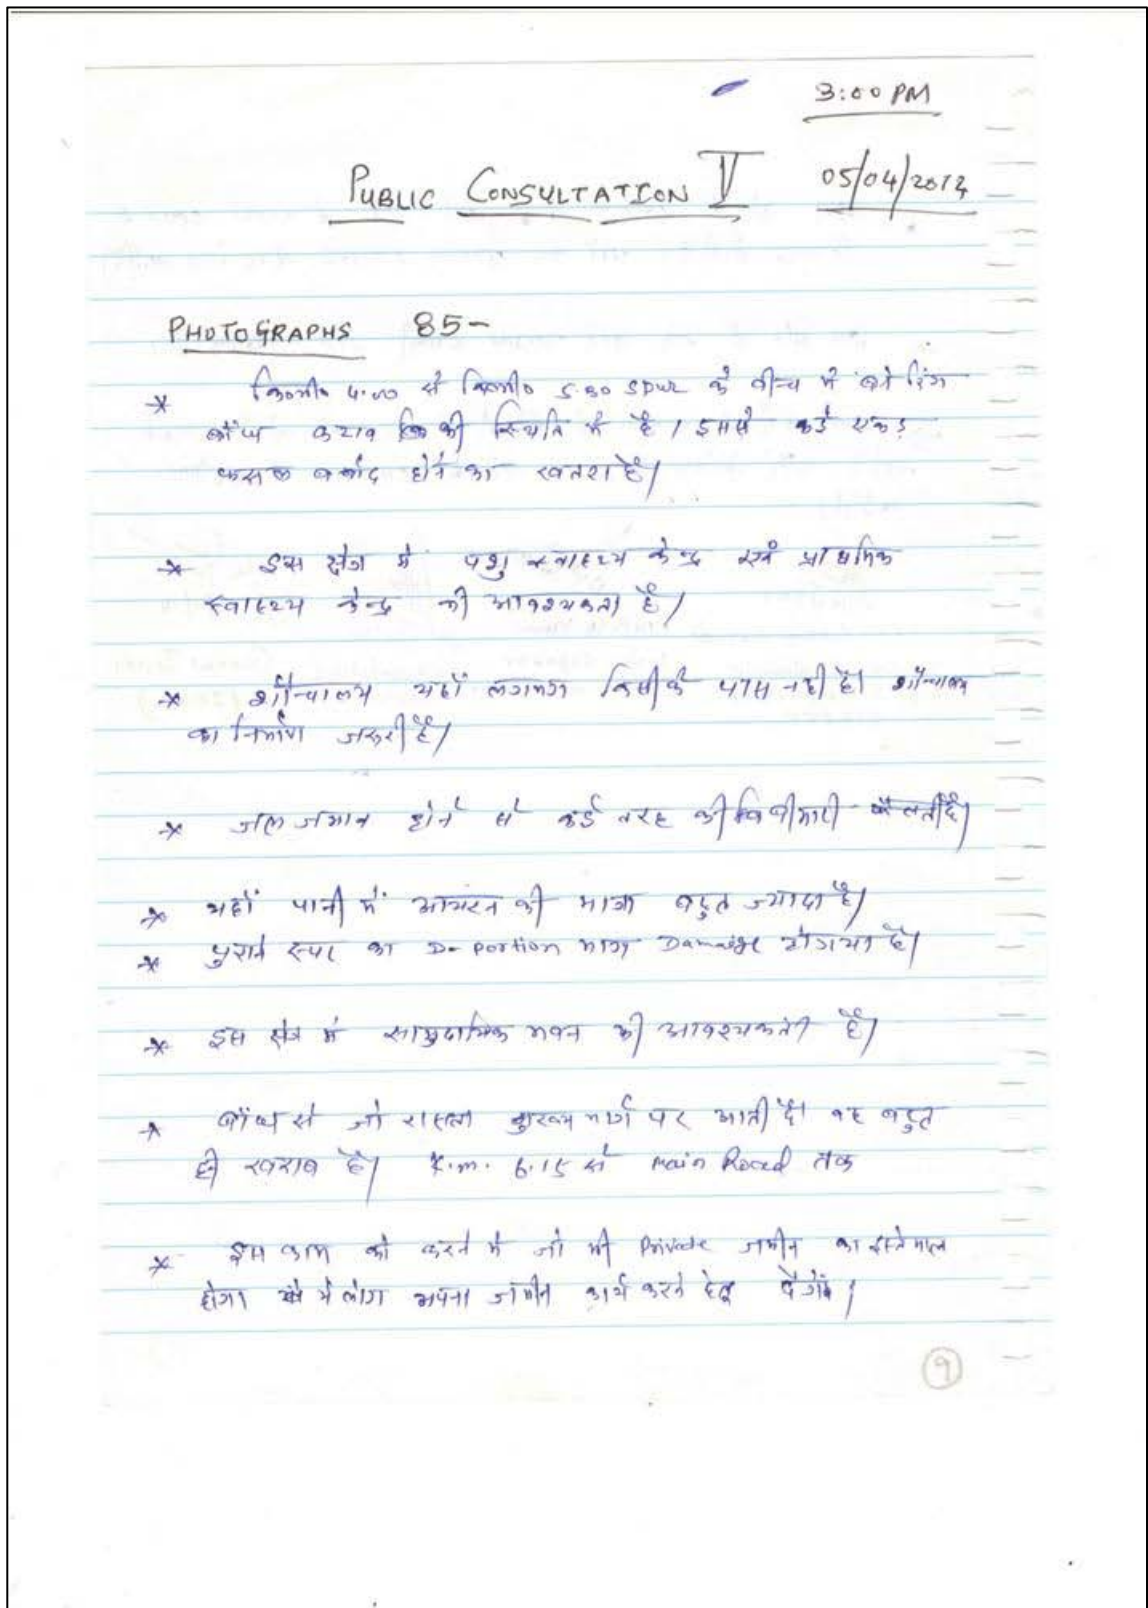 3:00 PM
PUBLIC CONSULTATION V 05/04/2012
PHOTOGRAPHS 85-
* कि०मी० 4.00 से कि०मी० 5.80 SPUR के बीच में
बाँध कटाव की स्थिति में है। इससे कई एकड़
फसल बर्बाद होने का खतरा है।
* इस क्षेत्र में पशु स्वास्थ्य केन्द्र एवं प्राथमिक
स्वास्थ्य केन्द्र की आवश्यकता है।
* शौचालय यहाँ लगभग किसी के पास नही है। शौचालय
का निर्माण जरूरी है।
* जल जमाव होने से कई तरह की बीमारी फैलती है।
* यहाँ पानी में आयरन की मात्रा बहुत ज्यादा है।
* पुराने स्पर का D-portion भाग Damaige हो गया है।
* इस क्षेत्र में सामुदायिक भवन की आवश्यकता है।
* बाँध से जो रास्ता मुख्य मार्ग पर आती है। वह बहुत
ही खराब है। K.m. 6.15 से main Road तक
* इस काम को करने में जो भी Private जमीन का इस्तेमाल
होगा ये लोग अपना जमीन कार्य करने हेतु देगें।
9